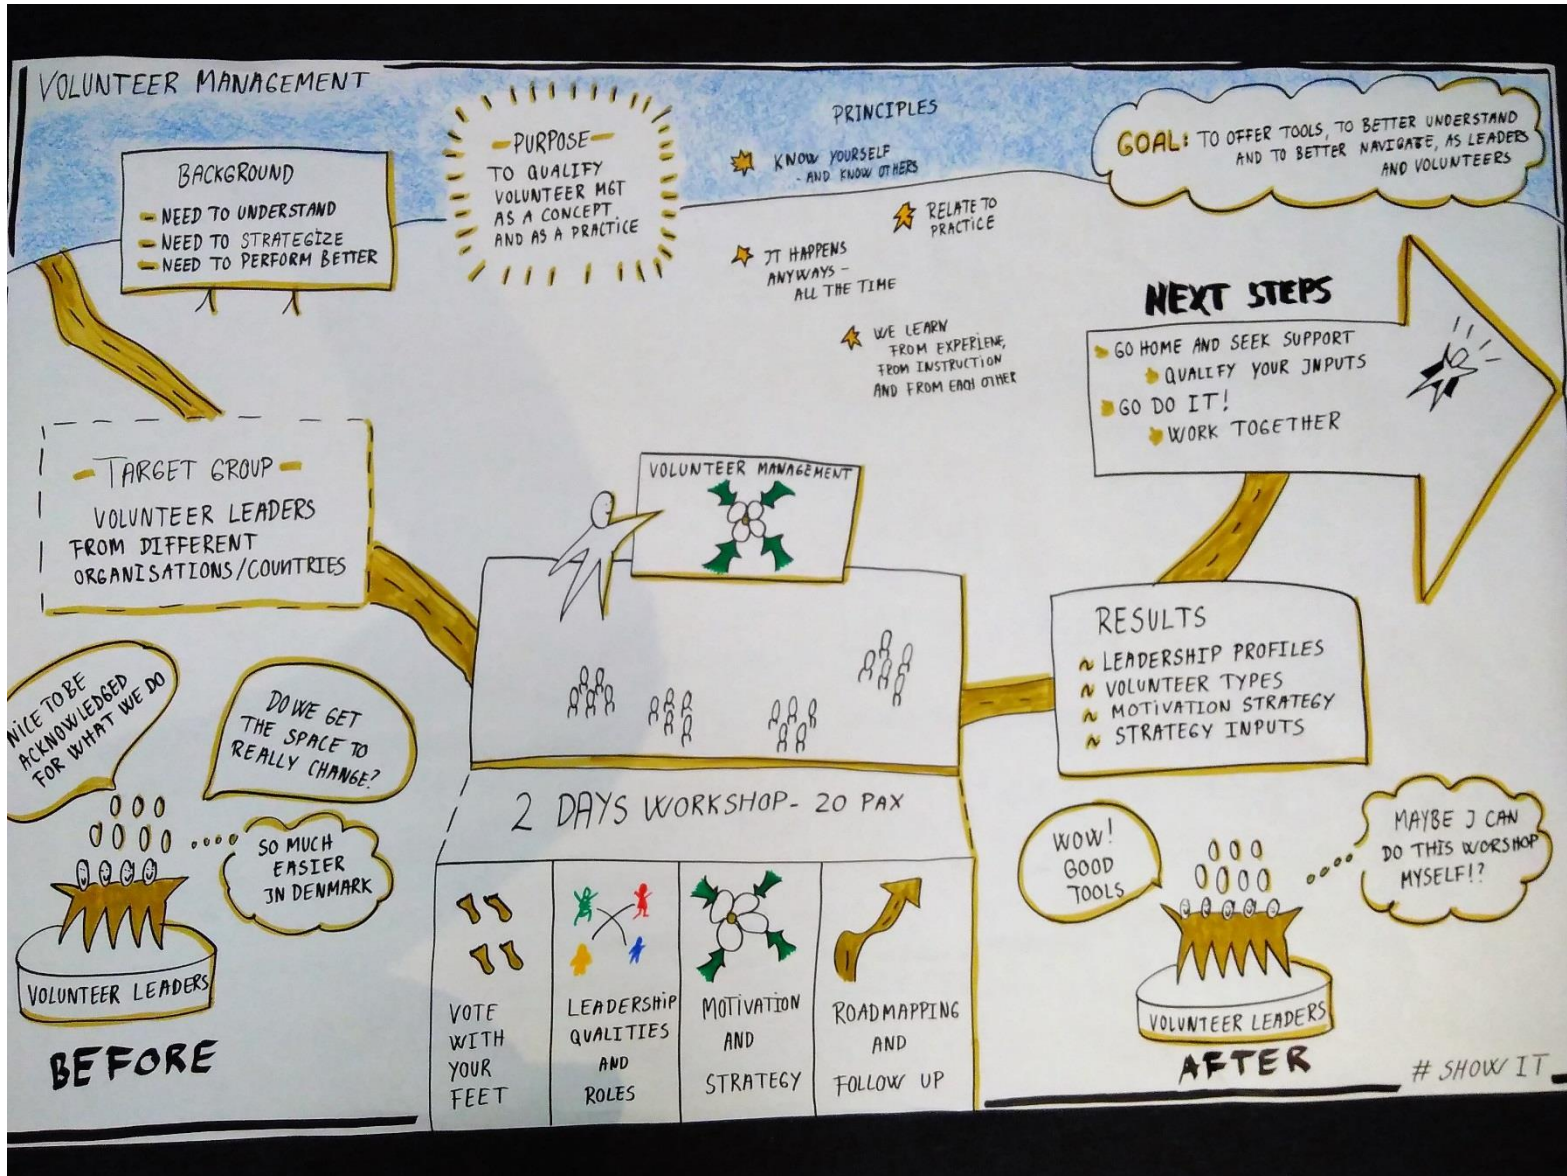 VOLUNTEER MANAGEMENT
BACKGROUND
NEED TO UNDERSTAND
NEED TO STRATEGIZE
NEED TO PERFORM BETTER
PURPOSE
TO QUALIFY
VOLUNTEER MGT
AS A CONCEPT
AND AS A PRACTICE
PRINCIPLES
KNOW YOURSELF
- AND KNOW OTHERS
RELATE TO
PRACTICE
IT HAPPENS
ANYWAYS -
ALL THE TIME
WE LEARN
FROM EXPERIENE,
FROM INSTRUCTION
AND FROM EACH OTHER
GOAL: TO OFFER TOOLS, TO BETTER UNDERSTAND
AND TO BETTER NAVIGATE, AS LEADERS
AND VOLUNTEERS
NEXT STEPS
GO HOME AND SEEK SUPPORT
QUALIFY YOUR INPUTS
GO DO IT!
WORK TOGETHER
TARGET GROUP
VOLUNTEER LEADERS
FROM DIFFERENT
ORGANISATIONS/COUNTRIES
VOLUNTEER MANAGEMENT
RESULTS
LEADERSHIP PROFILES
VOLUNTEER TYPES
MOTIVATION STRATEGY
STRATEGY INPUTS
NICE TO BE
ACKNOWLEDGED
FOR WHAT WE DO
DO WE GET
THE SPACE TO
REALLY CHANGE?
SO MUCH
EASIER
IN DENMARK
VOLUNTEER LEADERS
BEFORE
2 DAYS WORKSHOP - 20 PAX
VOTE
WITH
YOUR
FEET
LEADERSHIP
QUALITIES
AND
ROLES
MOTIVATION
AND
STRATEGY
ROADMAPPING
AND
FOLLOW UP
WOW!
GOOD
TOOLS
MAYBE I CAN
DO THIS WORSHOP
MYSELF!?
VOLUNTEER LEADERS
AFTER
# SHOW IT